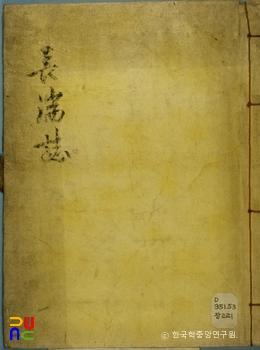 長湍誌
D
951.53
장224
ⓒ 한국학중앙연구원